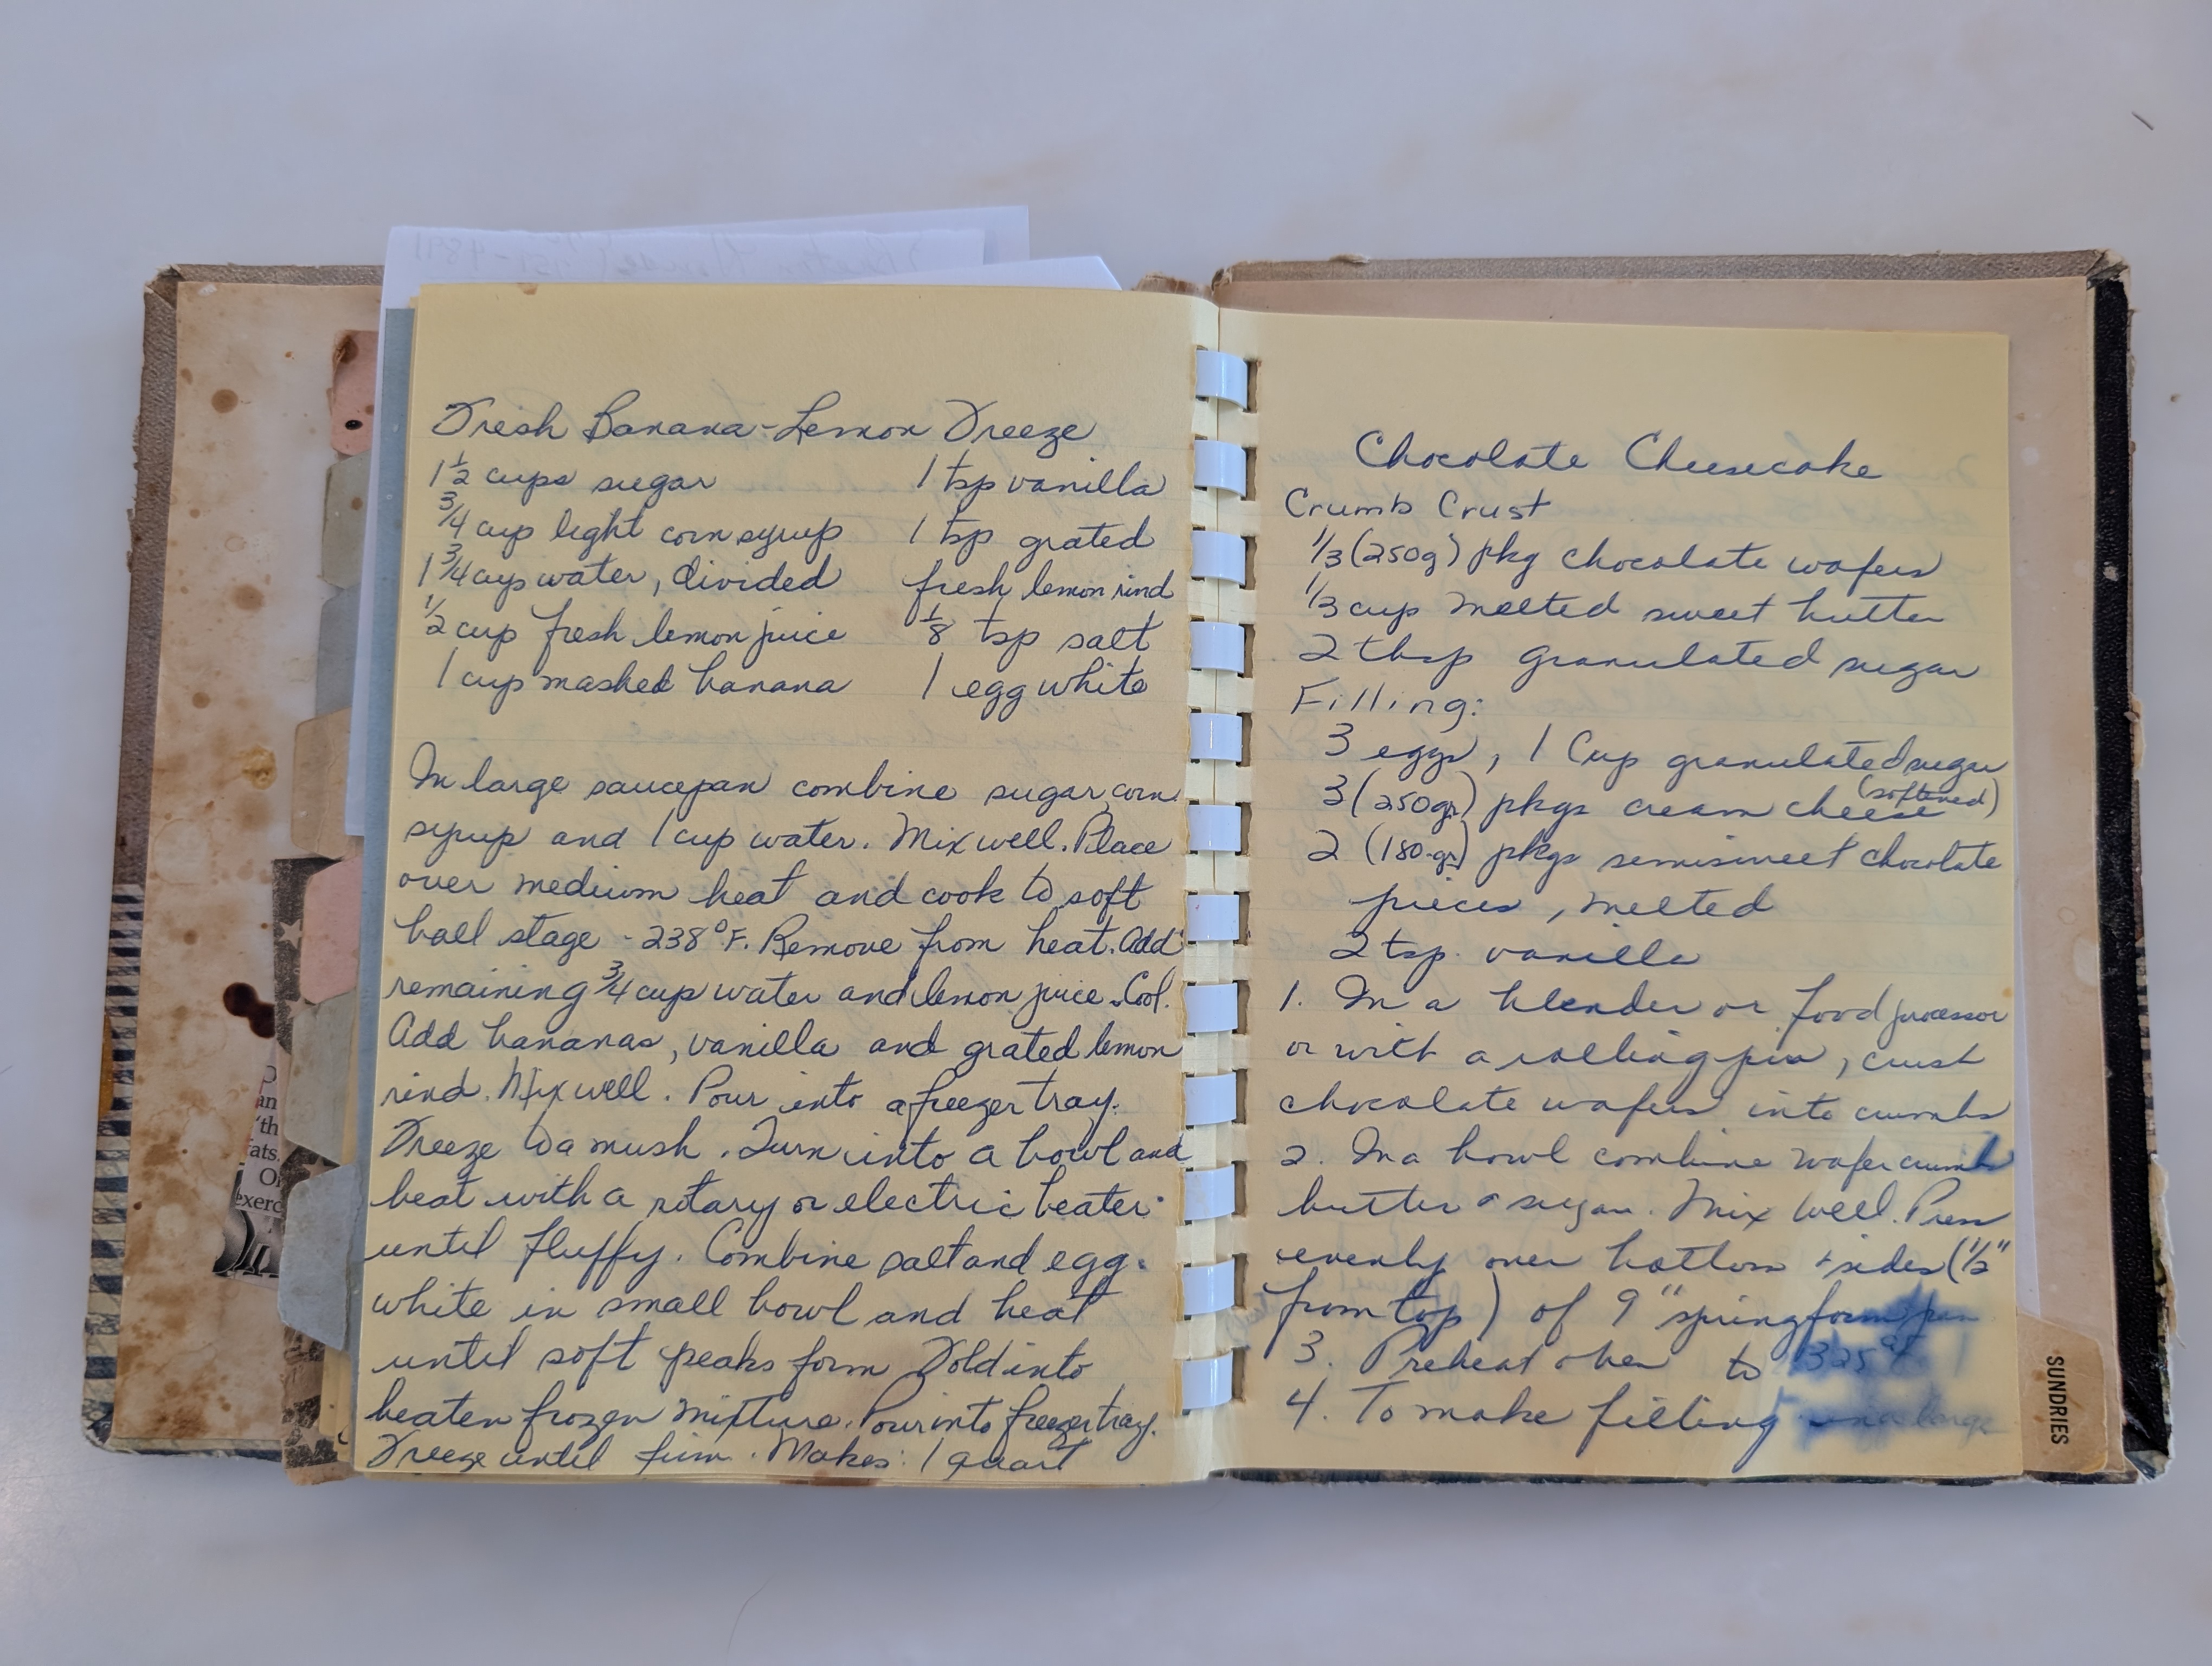 Fresh Banana-Lemon Freeze
1 1/2 cups sugar
3/4 cup light corn syrup
1 3/4 cups water, divided
1/2 cup fresh lemon juice
1 cup mashed banana
1 tsp vanilla
1 tsp grated
fresh lemon rind
1/8 tsp salt
1 egg white
In large saucepan combine sugar, corn
syrup and 1 cup water. Mix well. Place
over medium heat and cook to soft
ball stage - 238°F. Remove from heat. Add
remaining 3/4 cup water and lemon juice. Cool.
Add bananas, vanilla and grated lemon
rind. Mix well. Pour into a freezer tray.
Freeze to a mush. Turn into a bowl and
beat with a rotary or electric beater
until fluffy. Combine salt and egg
white in small bowl and beat
until soft peaks form Fold into
beaten frozen mixture. Pour into freezer tray.
Freeze until firm. Makes: 1 quart
Chocolate Cheesecake
Crumb Crust
1/3 (250g) pkg chocolate wafers
1/3 cup melted sweet butter
2 tbsp granulated sugar
Filling:
3 eggs, 1 Cup granulated sugar
3 (250gr) pkgs cream cheese (softened)
2 (180-gr) pkgs semisweet chocolate
pieces, melted
2 tsp. vanilla
1. In a blender or food processor
or with a rolling pin, crush
chocolate wafers into crumbs
2. In a bowl combine wafer crumbs
butter & sugar. Mix well. Press
evenly over bottom + sides (1/2"
from top) of 9" springform pan
3. Preheat oven to 325°F
4. To make filling in a large
SUNDRIES
an
'th
ats.
Of
exerc